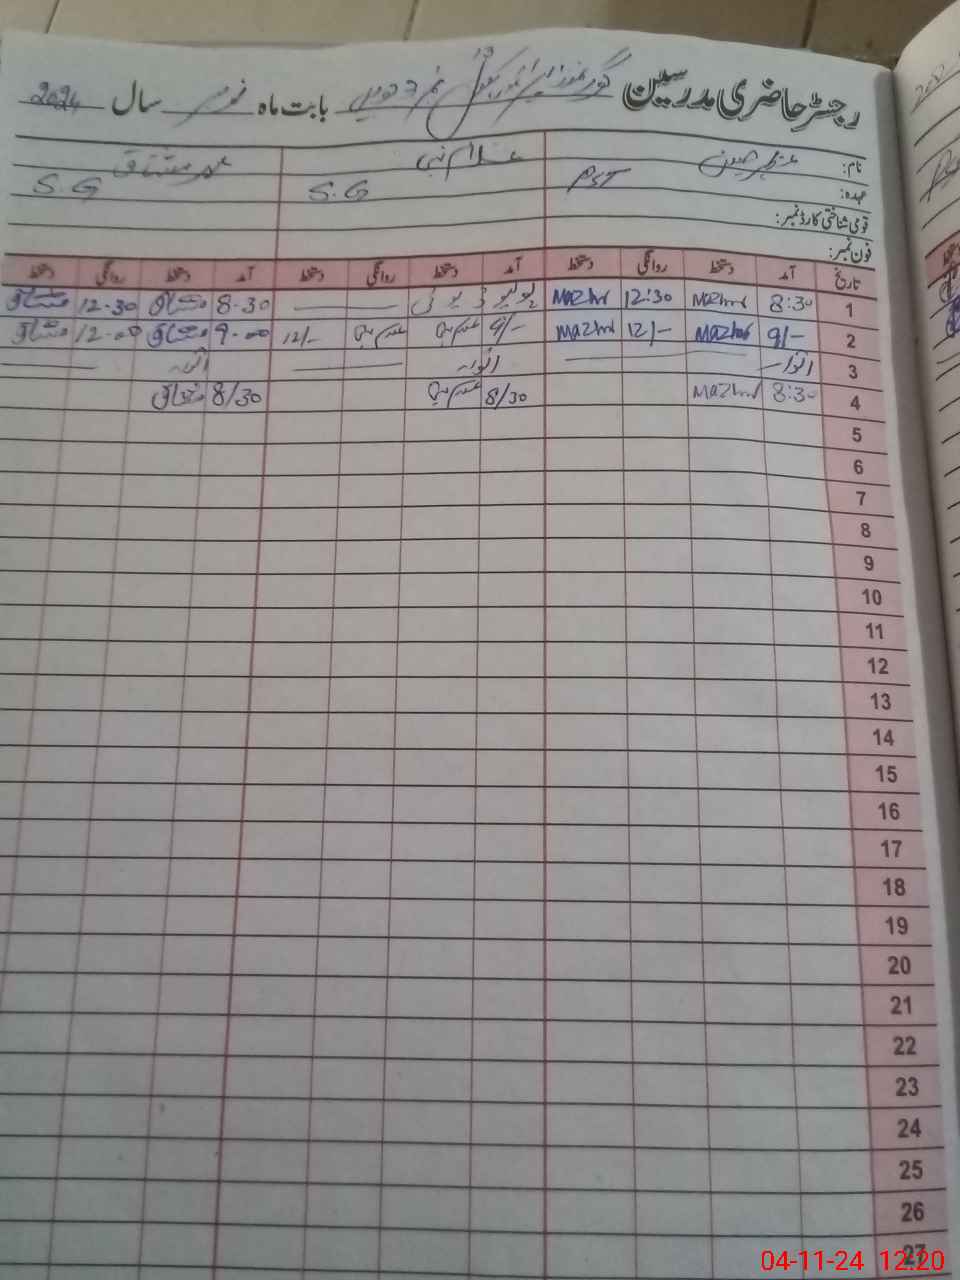 رجسٹر حاضری مدرسین گورنمنٹ پرائمری سکول نمبر بابت ماہ نومبر سال 2024
نام: مظہر حسین غلام نبی محمد مشتاق
عہدہ: PST S.G S.G
قومی شناختی کارڈ نمبر:
فون نمبر:
تاریخ آمد دستخط روانگی دستخط آمد دستخط روانگی دستخط آمد دستخط روانگی دستخط
1 8:30 Mazhar 12:30 Mazhar پولیو ڈیوٹی 8-30 مشتاق 12-30 مشتاق
2 9/- Mazhar 12/- Mazhar 9/- غلام نبی غلام نبی 12/- 9-00 مشتاق 12-00 مشتاق
3 اتوار اتوار اتوار
4 8:30 Mazhar 8/30 غلام نبی 8/30 مشتاق
5
6
7
8
9
10
11
12
13
14
15
16
17
18
19
20
21
22
23
24
25
26
27
04-11-24 12:20